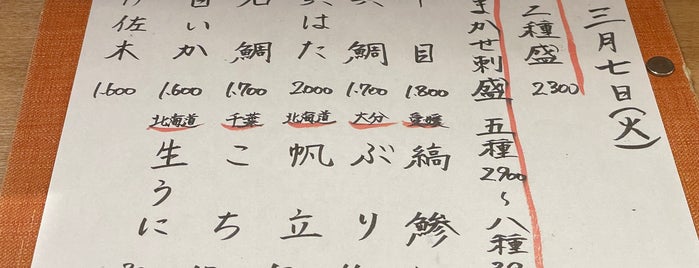 三月七日(火)
三種盛 2300
まかせ刺盛 五種 2900~八種
目 1.800
鯛 1.700
はた 2000
鯛 1.700
いか 1.600
佐木 1.600
愛媛 縞鯵
大分 ぶり
北海道 帆立
千葉 こち
北海道 生うに